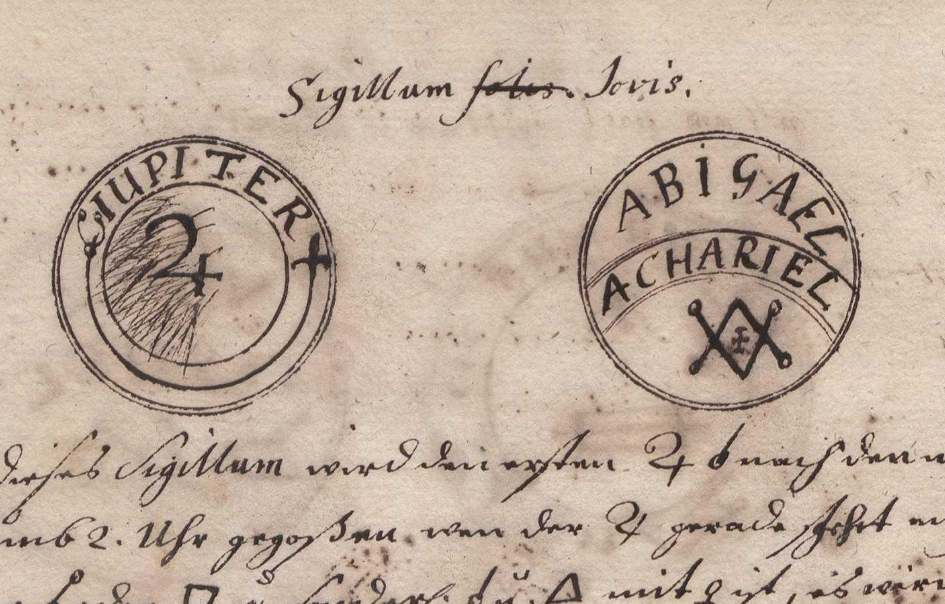 Sigillum solis. Jovis.
GIUPITER
♃
ABIGAEL
ACHARIEL
dieses Sigillum wird den ersten ♃ nach den
umb 2. Uhr gegoßen wen der ♃ gerade stehet
mit ist, es wird